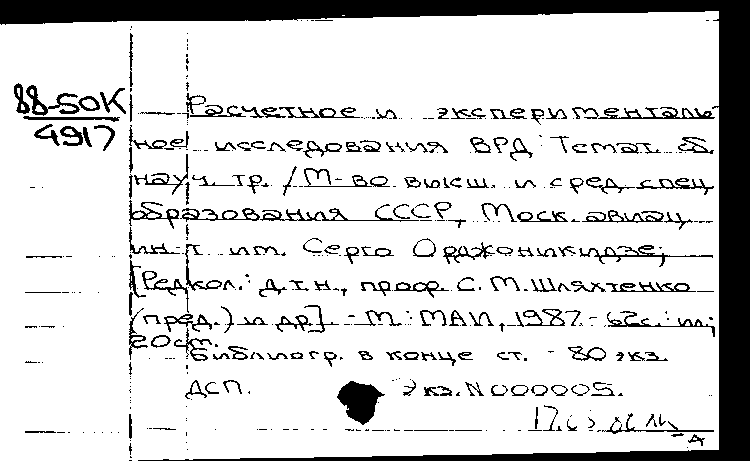 88-50К
4917
Расчетное и эксперименталь
ное исследования ВРД : Темат. сб.
науч. тр. / М-во высш. и сред. спец
образования СССР, Моск. авиац.
ин-т им. Серго Орджоникидзе;
[Редкол.: д.т.н., проф. С.М. Шляхтенко
(пред.) и др]. - М : МАИ, 1987. - 62с. : ил;
20 см.
Библиогр. в конце ст. - 80 экз.
ДСП. Экз. N 000005.